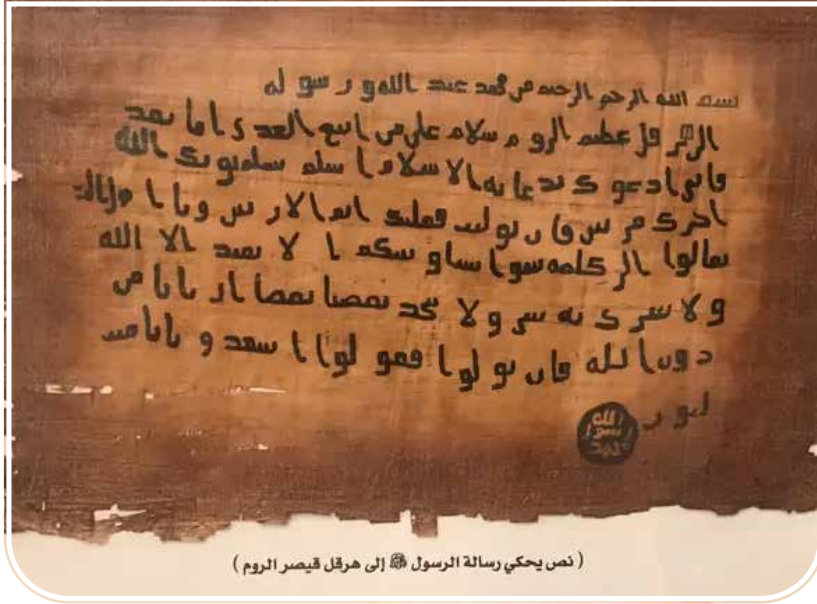 بسم الله الرحمن الرحيم من محمد عبد الله ورسوله
الى هرقل عظيم الروم سلام على من اتبع الهدى اما بعد
فانى ادعوك بدعاية الاسلام اسلم تسلم يوتك الله
اجرك مرتين فان توليت فعليك اثم الاريسين ويا اهل
تعالوا الى كلمة سوا بيننا وبينكم الا نعبد الا الله
ولا نشرك به ولا يتخذ بعضنا بعضا اربابا من
دون الله فان تولوا فقولوا اشهدوا بانا مس
لمون
الله
رسول
محمد
( نص يحكي رسالة الرسول ﷺ إلى هرقل قيصر الروم )